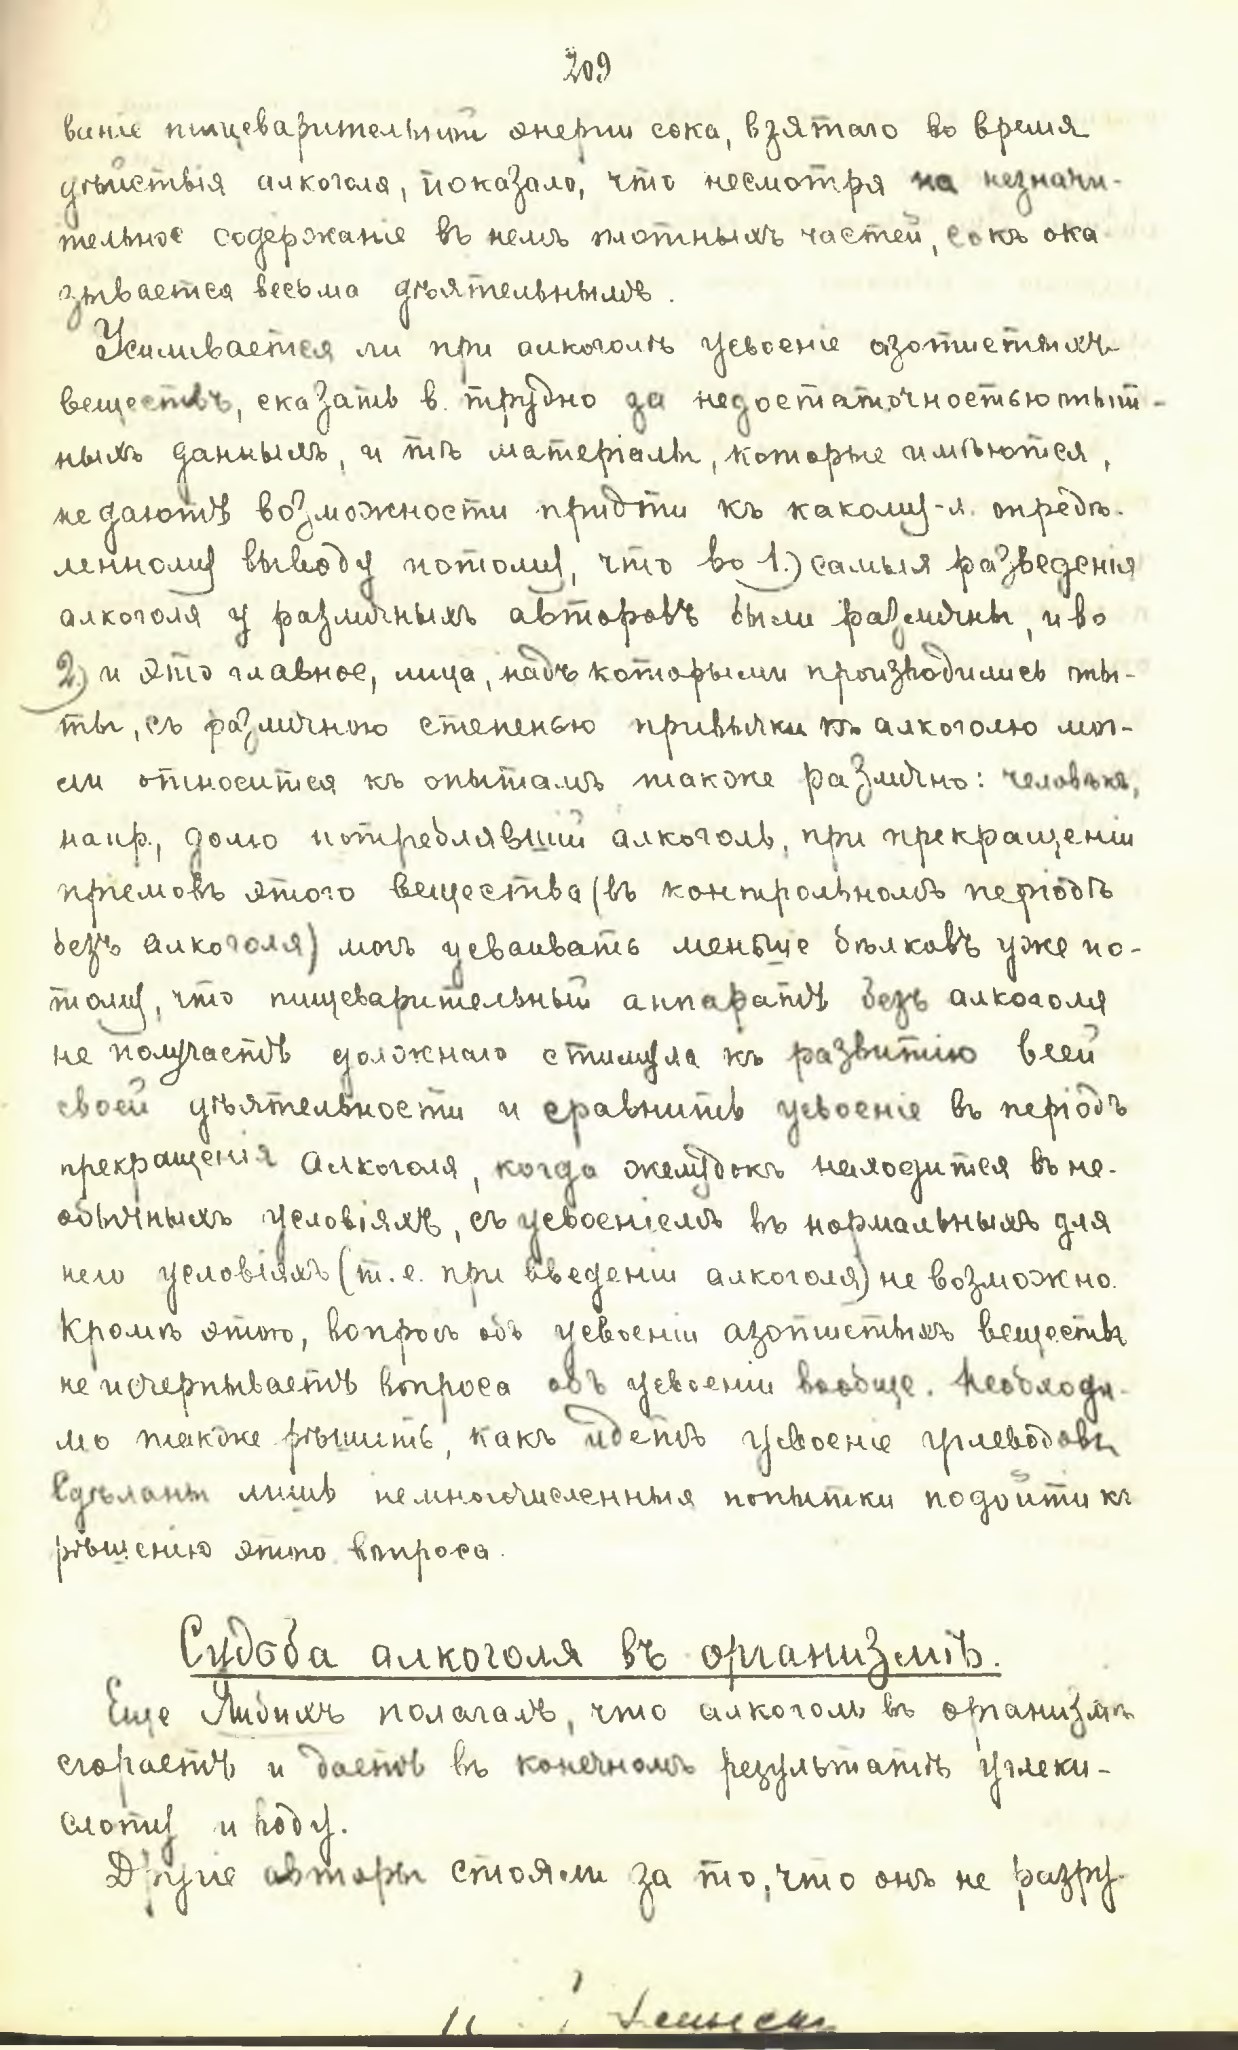 209
ваніе пищеварительной энергіи сока, взятаго во время
дѣйствія алкоголя, показало, что несмотря на незначи-
тельное содержаніе въ немъ плотныхъ частей, сокъ ока
зывается весьма дѣятельнымъ.
Усиливается ли при алкоголѣ усвоеніе азотистыхъ
веществъ, сказать в. трудно за недостаточностью опыт-
ныхъ данныхъ, и тѣ матеріалы, которые имѣются,
не даютъ возможности придти къ какому-л. опредѣ-
ленному выводу потому, что во 1.) самыя разведенія
алкоголя у различныхъ авторовъ были различны, и во
2.) и это главное, лица, надъ которыми производились опы-
ты, съ различною степенью привычки къ алкоголю мог-
ли относится къ опытамъ также различно: человѣкъ,
напр., долго потреблявшій алкоголь, при прекращеніи
пріемовъ этого вещества (въ контрольномъ періодѣ
безъ алкоголя) могъ усваивать меньше бѣлковъ уже по-
тому, что пищеварительный аппаратъ безъ алкоголя
не получаетъ должнаго стимула къ развитію всей
своей дѣятельности и сравнить усвоеніе въ періодъ
прекращенія алкоголя, когда желудокъ находится въ не-
обычныхъ условіяхъ, съ усвоеніемъ въ нормальныхъ для
него условіяхъ (т.е. при введеніи алкоголя) не возможно.
Кромѣ этого, вопросъ объ усвоеніи азотистыхъ веществъ
не исчерпываетъ вопроса объ усвоеніи вообще. Необходи-
мо также рѣшить, какъ идетъ усвоеніе углеводовъ
Сдѣланы лишь немногочисленныя попытки подойти къ
рѣшенію этого вопроса.
Судьба алкоголя въ организмѣ.
Еще Либихъ полагалъ, что алкоголь въ организмѣ
сгораетъ и даетъ въ конечномъ результатѣ углеки-
слоту и воду.
Другіе авторы стояли за то, что онъ не разру-